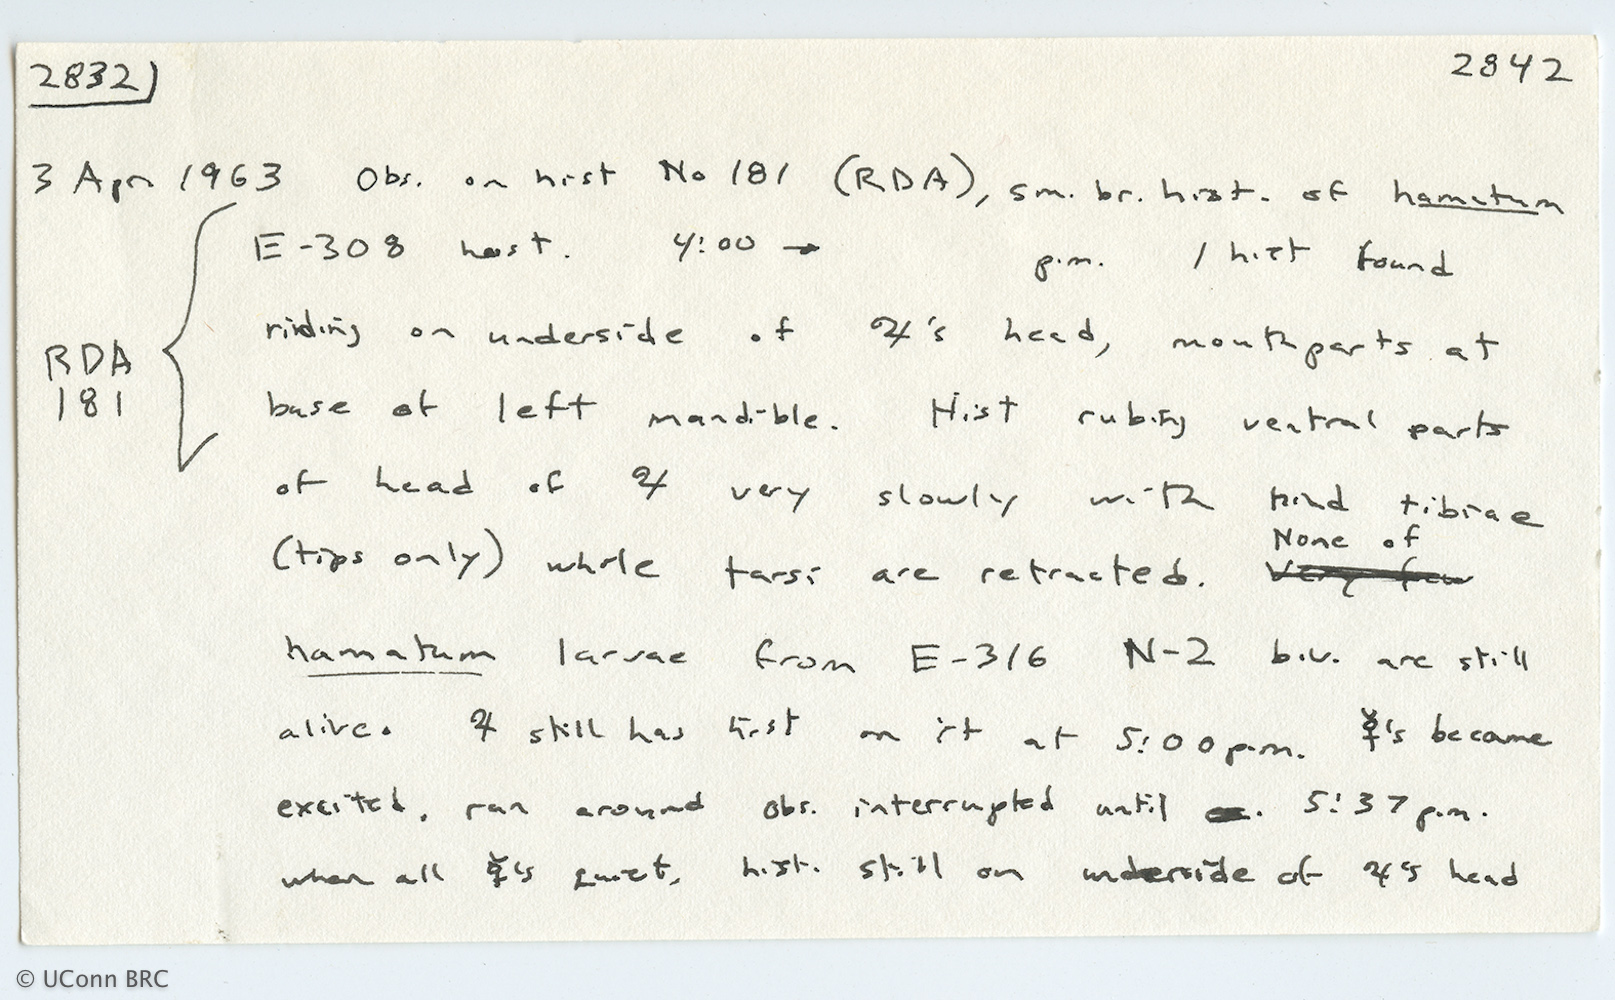 2832)
2842
3 Apr 1963 Obs. on hist No 181 (RDA), sm. br. hist. of hamatum
E-308 host. 4:00 → p.m. 1 hist found
riding on underside of ♃'s head, mouthparts at
RDA
181
base of left mandible. Hist rubing ventral parts
of head of ♃ very slowly with hind tibiae
(tips only) while tarsi are retracted. None of
hamatum larvae from E-316 N-2 biv. are still
alive. ♃ still has hist on it at 5:00 p.m. ☿'s became
excited, ran around obs. interrupted until 5:37 p.m.
when all ☿'s quiet, hist. still on underside of ♃'s head
© UConn BRC